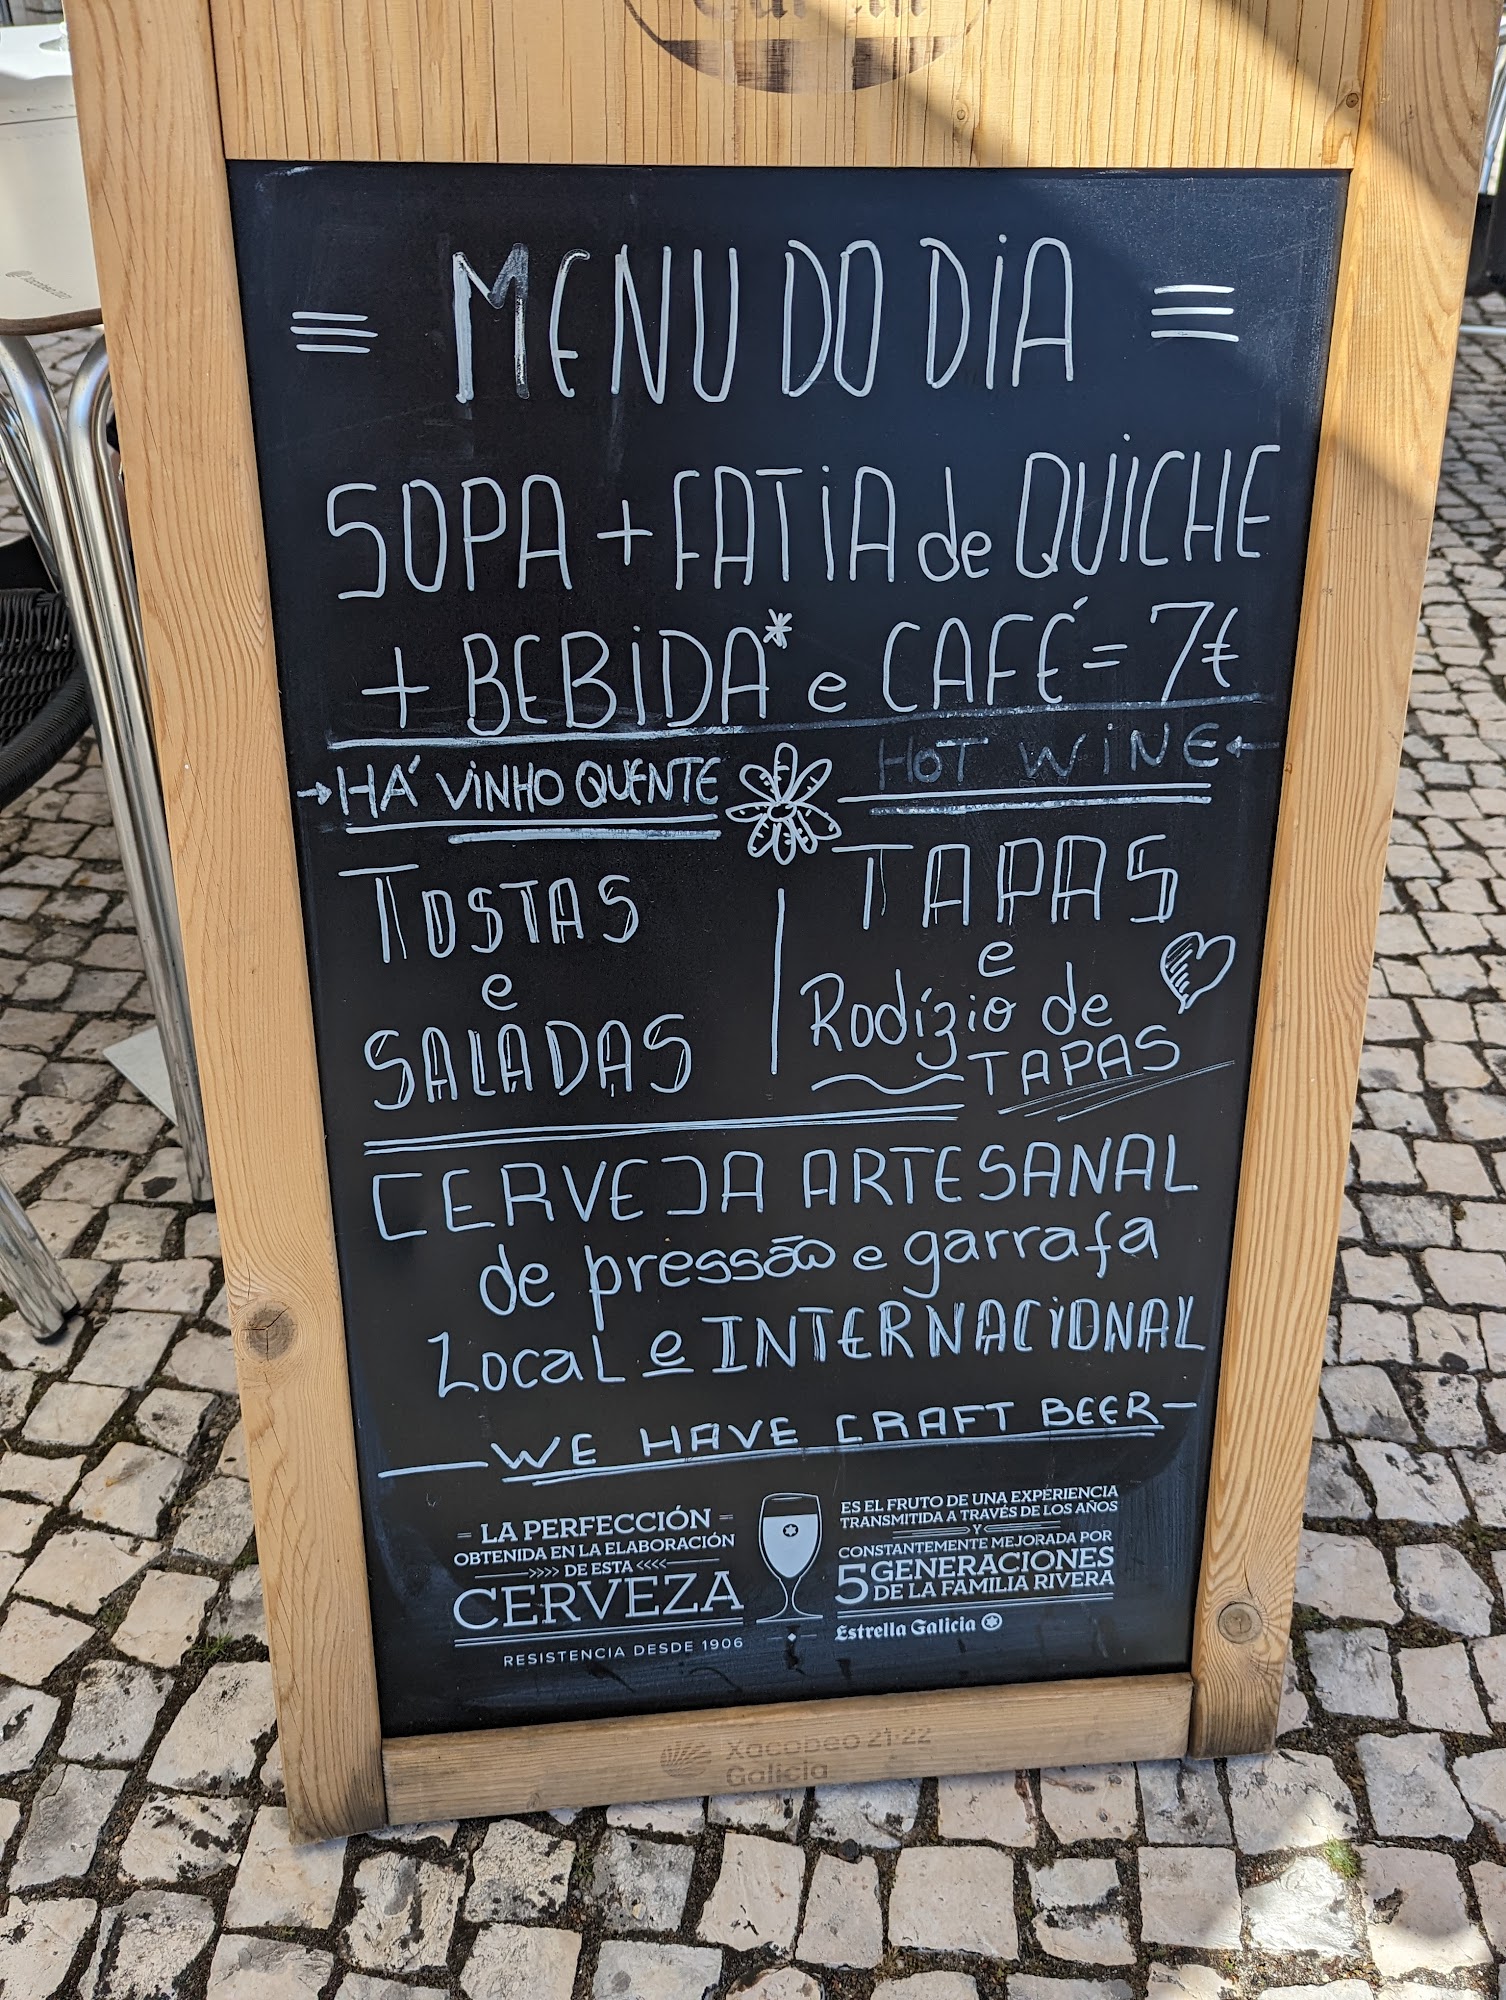 MENU DO DIA
SOPA + FATIA de QUICHE
+ BEBIDA* e CAFÉ = 7€
→ HÁ VINHO QUENTE
HOT WINE ←
TOSTAS
e
SALADAS
TAPAS
e
Rodízio de
TAPAS
CERVEJA ARTESANAL
de pressão e garrafa
Local e INTERNACIONAL
WE HAVE CRAFT BEER
LA PERFECCIÓN
OBTENIDA EN LA ELABORACIÓN
>>>> DE ESTA <<<<
CERVEZA
RESISTENCIA DESDE 1906
ES EL FRUTO DE UNA EXPERIENCIA
TRANSMITIDA A TRAVÉS DE LOS AÑOS
Y
CONSTANTEMENTE MEJORADA POR
5 GENERACIONES
DE LA FAMILIA RIVERA
Estrella Galicia
Xacobeo 21·22
Galicia